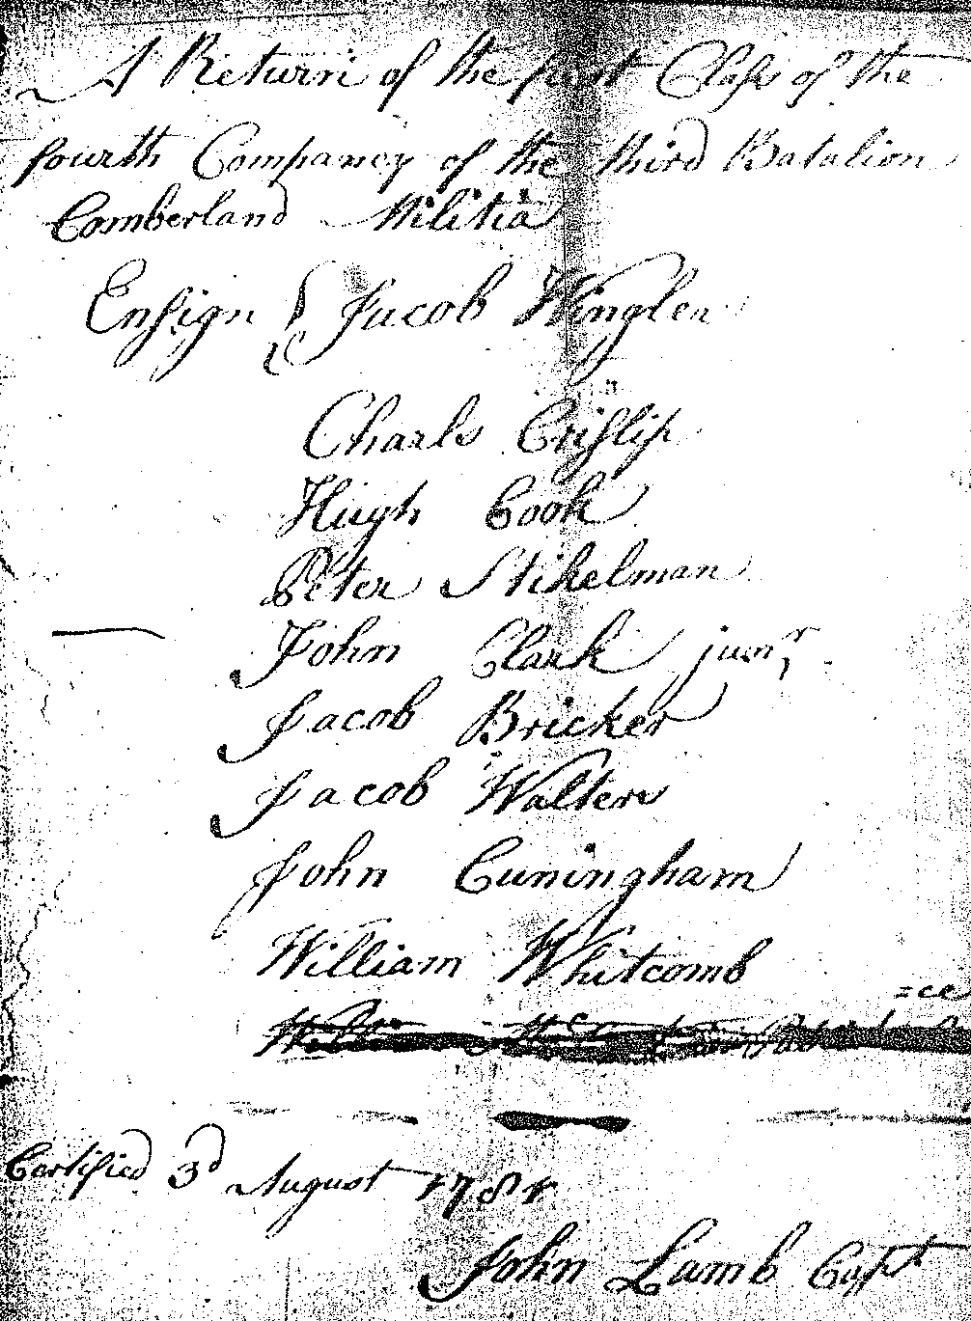 A Return of the first Class of the
fourth Company of the third Batalion
Comberland Militia
Ensign { Jacob Wingler
Charls Crislip
Hugh Cook
Peter Stikelman
John Clark junr
Jacob Bricker
Jacob Walters
John Cuningham
William Whitcomb
=ce
Certified 3d August 1781
John Lamb Capt